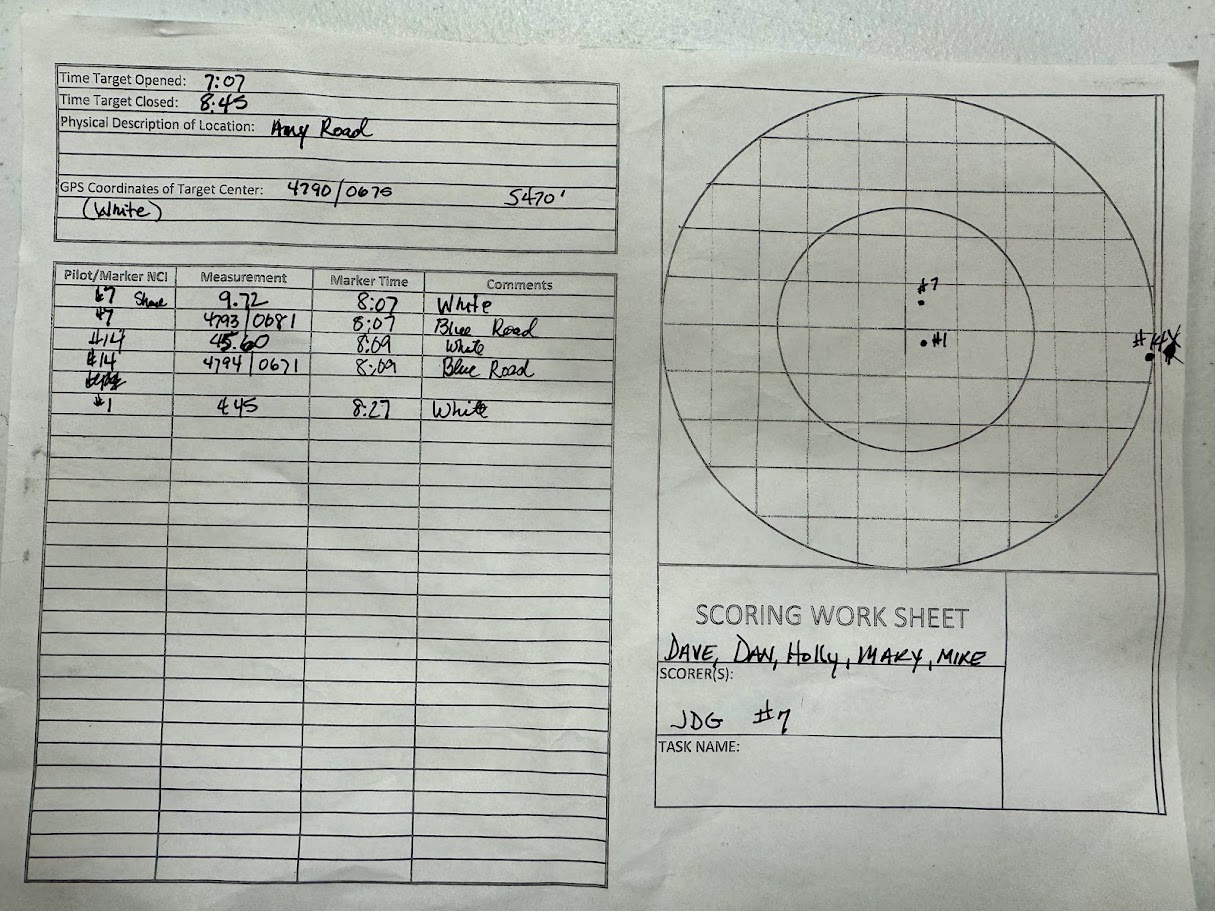 Time Target Opened: 7:07
Time Target Closed: 8:45
Physical Description of Location: Amy Road
GPS Coordinates of Target Center: 4790/0675 5470'
(White)
Pilot/Marker NCI Measurement Marker Time Comments
#7 9.72 8:07 White
#7 4793/0681 8:07 Blue Road
#14 45.60 8:09 White
#14 4794/0671 8:09 Blue Road
#1 4.45 8:27 White
#7
#1
#14
SCORING WORK SHEET
DAVE, DAN, Holly, MARY, MIKE
SCORER(S):
JDG #7
TASK NAME: